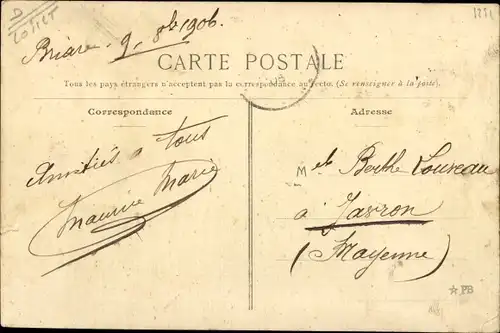 Loiret
Briare 9 8bre 1906
CARTE POSTALE
Tous les pays étrangers n'acceptent pas la correspondance au recto. (Se renseigner à la poste).
Correspondance
Amitiés à tous
Maurice Marie
Adresse
Melle Berthe Louveau
à Javron
(Mayenne)
PB